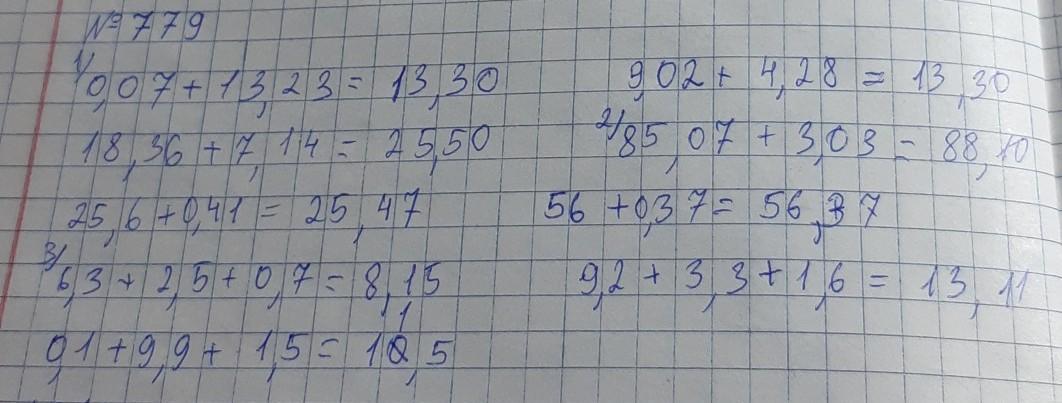 № 779
1/ 0,07 + 13,23 = 13,30 9,02 + 4,28 = 13,30
18,36 + 7,14 = 25,50 2/ 85,07 + 3,03 = 88,10
25,6 + 0,41 = 25,47 56 + 0,37 = 56,37
3/ 6,3 + 2,5 + 0,7 = 8,15 9,2 + 3,3 + 1,6 = 13,11
0,1 + 9,9 + 1,5 = 10,5